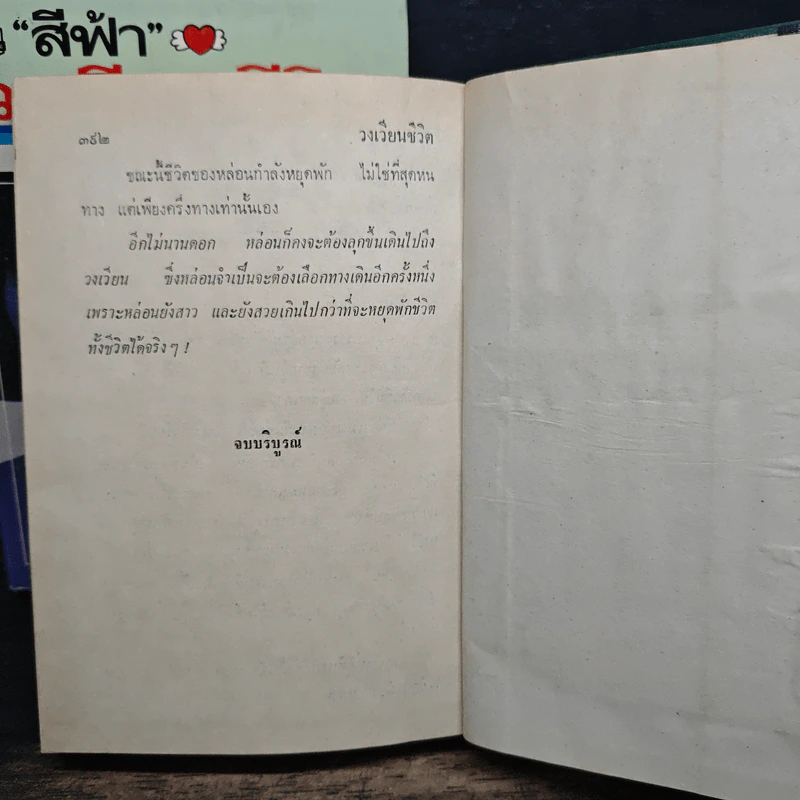 "สีฟ้า"
๓๙๒ วงเวียนชีวิต
ขณะนี้ชีวิตของหล่อนกำลังหยุดพัก ไม่ใช่ที่สุดหน
ทาง แต่เพียงครึ่งทางเท่านั้นเอง
อีกไม่นานดอก หล่อนก็คงจะต้องลุกขึ้นเดินไปถึง
วงเวียน ซึ่งหล่อนจำเป็นจะต้องเลือกทางเดินอีกครั้งหนึ่ง
เพราะหล่อนยังสาว และยังสวยเกินไปกว่าที่จะหยุดพักชีวิต
ทั้งชีวิตได้จริงๆ !
จบบริบูรณ์